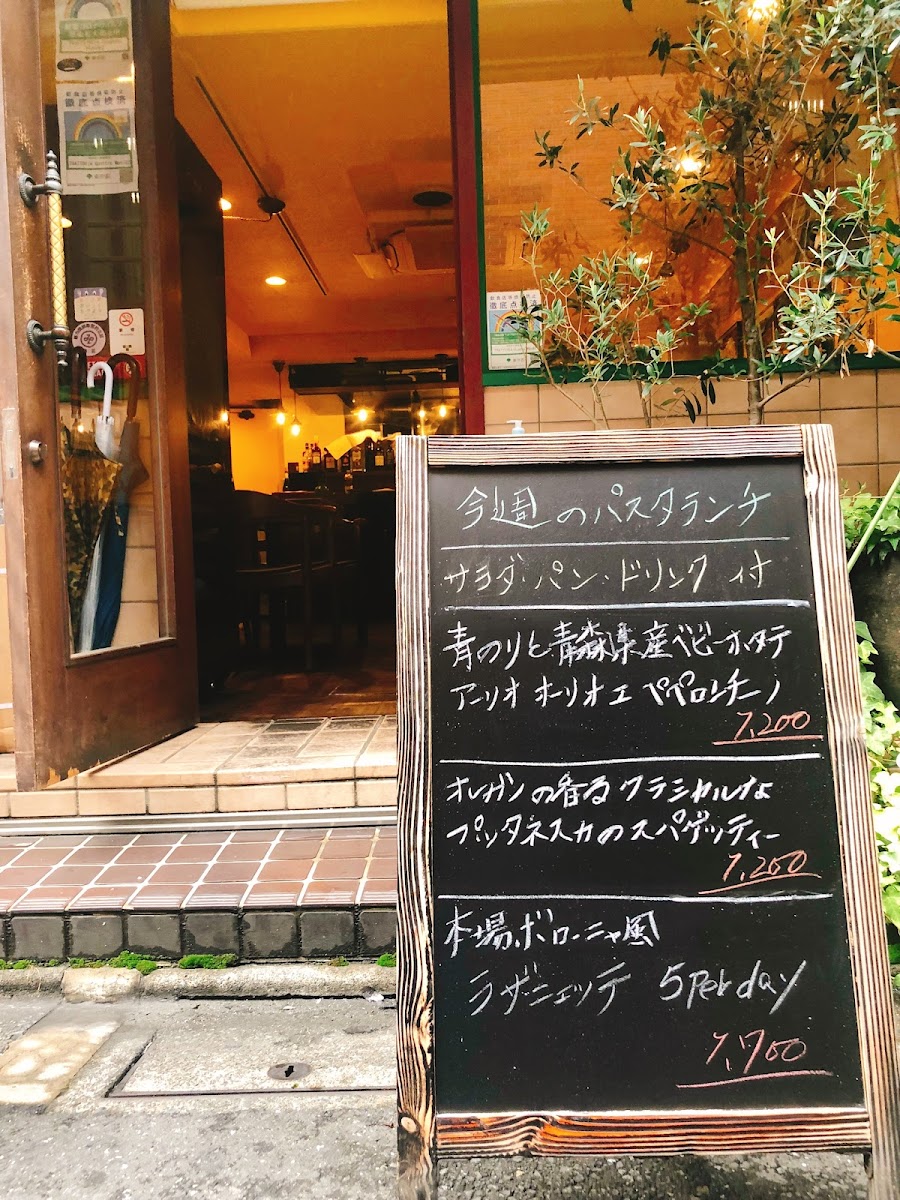 徹底点検済
徹底点検済
今週のパスタランチ
サラダ・パン・ドリンク付
青のりと青森県産ベビーホタテ
アーリオ オーリオ エ ペペロンチーノ
1,200
オレガノの香るクラシカルな
プッタネスカのスパゲッティー
1,200
本場、ボローニャ風
ラザーニェッテ 5 Per day
1,700